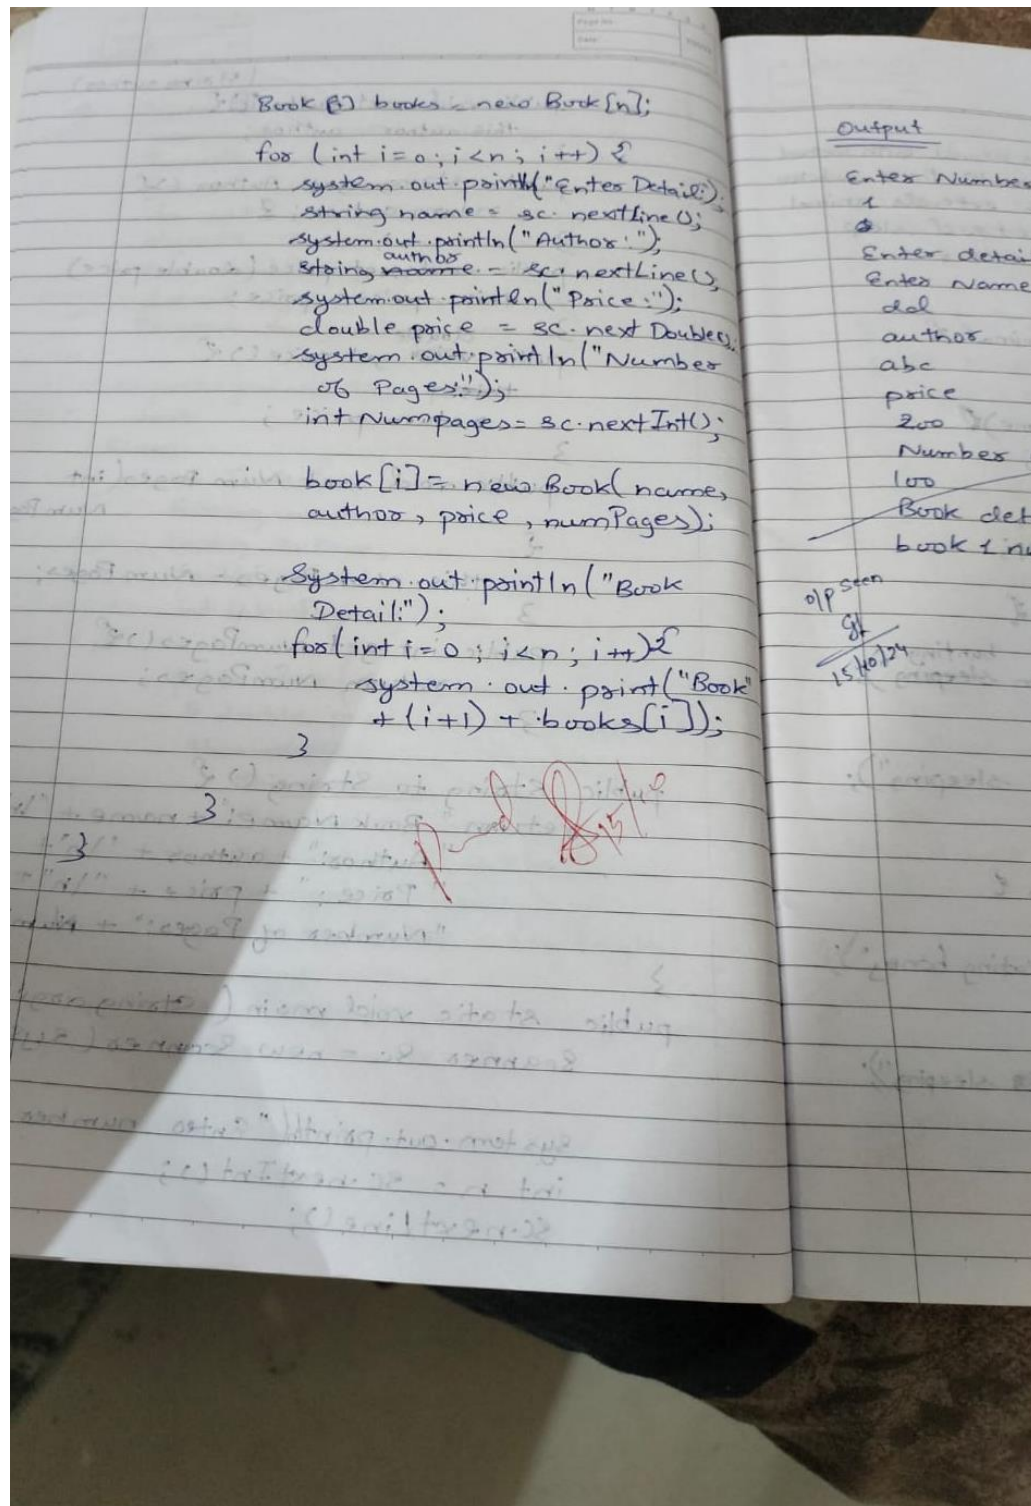 Page No.
Date
Book [] books = new Book [n];
for (int i=0; i<n; i++) {
system.out.println("Enter Detail:);
string name = sc.nextline();
system.out.println("Author:");
string author = sc.nextLine();
system.out.println("Price:");
double price = sc.next Double();
system.out.println("Number
of Pages:");
int Numpages = sc.nextInt();
book [i] = new Book( name,
author, price, numPages);
System.out.println("Book
Detail:");
for( int i=0 ; i<n ; i++){
system.out.print("Book"
+ (i+1) + books[i]);
}
}
}
15/10
Output
Enter Number
1
Enter detai
Enter Name
dol
author
abc
price
200
Number
100
Book det
book 1 nu
o/p seen
15/10/24